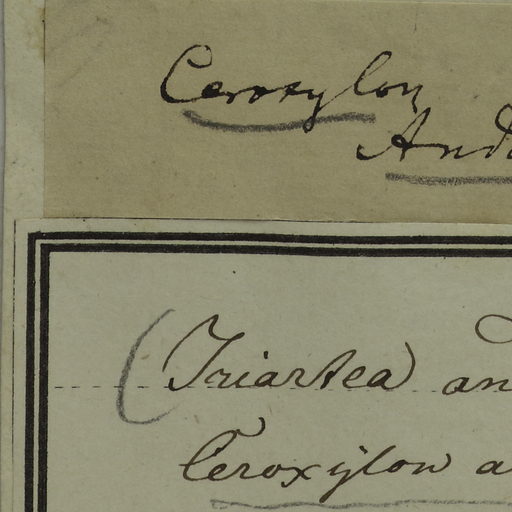 Ceroxylon
And
(Iriartea an
Ceroxylon a